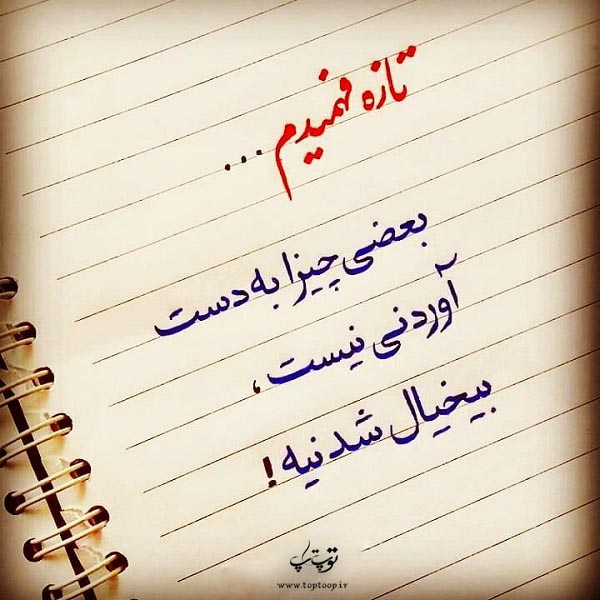 تازه فهمیدم ...
بعضی چیزا به دست
آوردنی نیست،
بیخیال شدنیه!
توپ تاپ
www.toptoop.ir